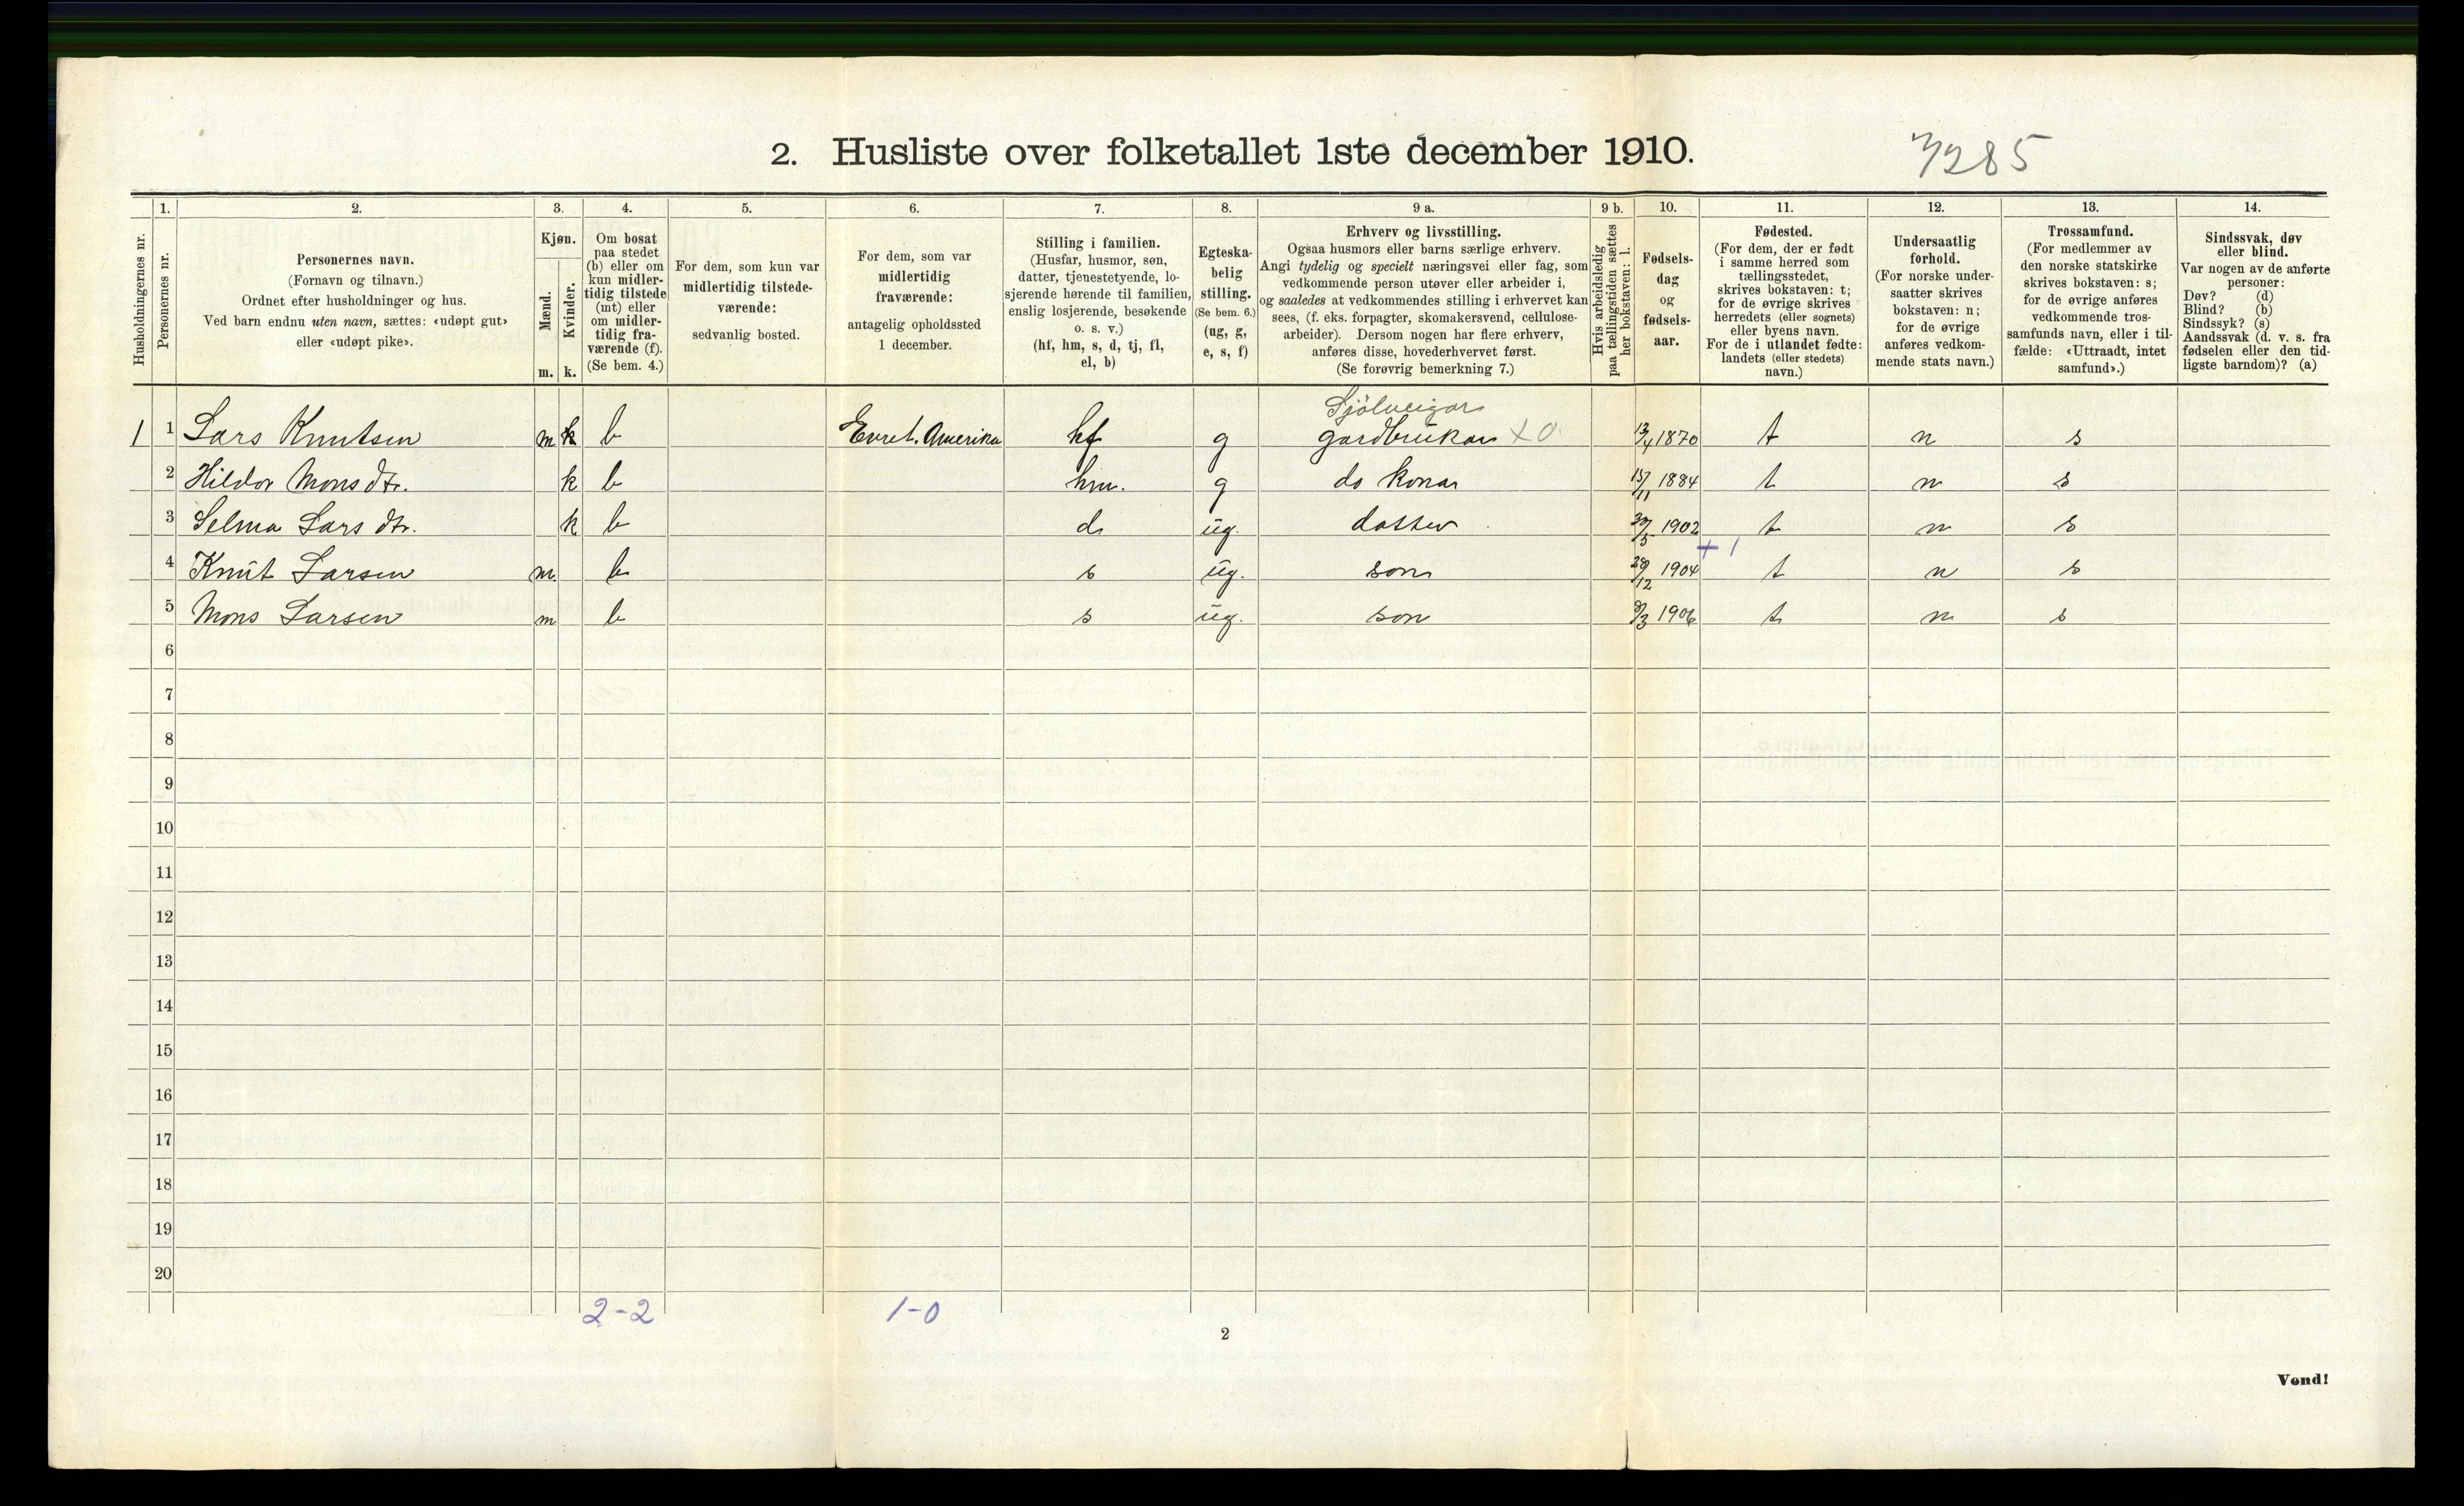 2. Husliste over folketallet 1ste december 1910.
7285
1. 2. 3. 4. 5. 6. 7. 8. 9 a. 9 b. 10. 11. 12. 13. 14.
Husholdningernes nr.
Personernes nr.
Personernes navn.
(Fornavn og tilnavn.)
Ordnet efter husholdninger og hus.
Ved barn endnu uten navn, sættes: «udøpt gut»
eller «udøpt pike».
Kjøn.
Mænd.
Kvinder.
m. k.
Om bosat
paa stedet
(b) eller om
kun midler-
tidig tilstede
(mt) eller
om midler-
tidig fra-
værende (f).
(Se bem. 4.)
For dem, som kun var
midlertidig tilstede-
værende:
sedvanlig bosted.
For dem, som var
midlertidig
fraværende:
antagelig opholdssted
1 december.
Stilling i familien.
(Husfar, husmor, søn,
datter, tjenestetyende, lo-
sjerende hørende til familien,
enslig losjerende, besøkende
o. s. v.)
(hf, hm, s, d, tj, fl,
el, b)
Egteska-
belig
stilling.
(Se bem. 6.)
(ug, g,
e, s, f)
Erhverv og livsstilling.
Ogsaa husmors eller barns særlige erhverv.
Angi tydelig og specielt næringsvei eller fag, som
vedkommende person utøver eller arbeider i,
og saaledes at vedkommendes stilling i erhvervet kan
sees, (f. eks. forpagter, skomakersvend, cellulose-
arbeider). Dersom nogen har flere erhverv,
anføres disse, hovederhvervet først.
(Se forøvrig bemerkning 7.)
Hvis arbeidsledig
paa tællingstiden sættes
her bokstaven: l.
Fødsels-
dag
og
fødsels-
aar.
Fødested.
(For dem, der er født
i samme herred som
tællingsstedet,
skrives bokstaven: t;
for de øvrige skrives
herredets (eller sognets)
eller byens navn.
For de i utlandet fødte:
landets (eller stedets)
navn.)
Undersaatlig
forhold.
(For norske under-
saatter skrives
bokstaven: n;
for de øvrige
anføres vedkom-
mende stats navn.)
Trossamfund.
(For medlemmer av
den norske statskirke
skrives bokstaven: s;
for de øvrige anføres
vedkommende tros-
samfunds navn, eller i til-
fælde: «Uttraadt, intet
samfund».)
Sindssvak, døv
eller blind.
Var nogen av de anførte
personer:
Døv? (d)
Blind? (b)
Sindssyk? (s)
Aandssvak (d. v. s. fra
fødselen eller den tid-
ligste barndom)? (a)
Sjölveigar
1 1 Lars Knutsen m k b Amerika hf g gardbrukar x 0 13/4 1870 t n s
2 Hildor Monsdtr. k b hm. g do konar 15/11 1884 t n s
3 Selma Larsdtr. k b d ug. dotter 30/5 1902 t n s
+ 1
4 Knut Larsen m b s ug. son 29/12 1904 t n s
5 Mons Larsen m b s ug. son 9/3 1906 t n s
6
7
8
9
10
11
12
13
14
15
16
17
18
19
20
2-2 1-0
2
Vend!